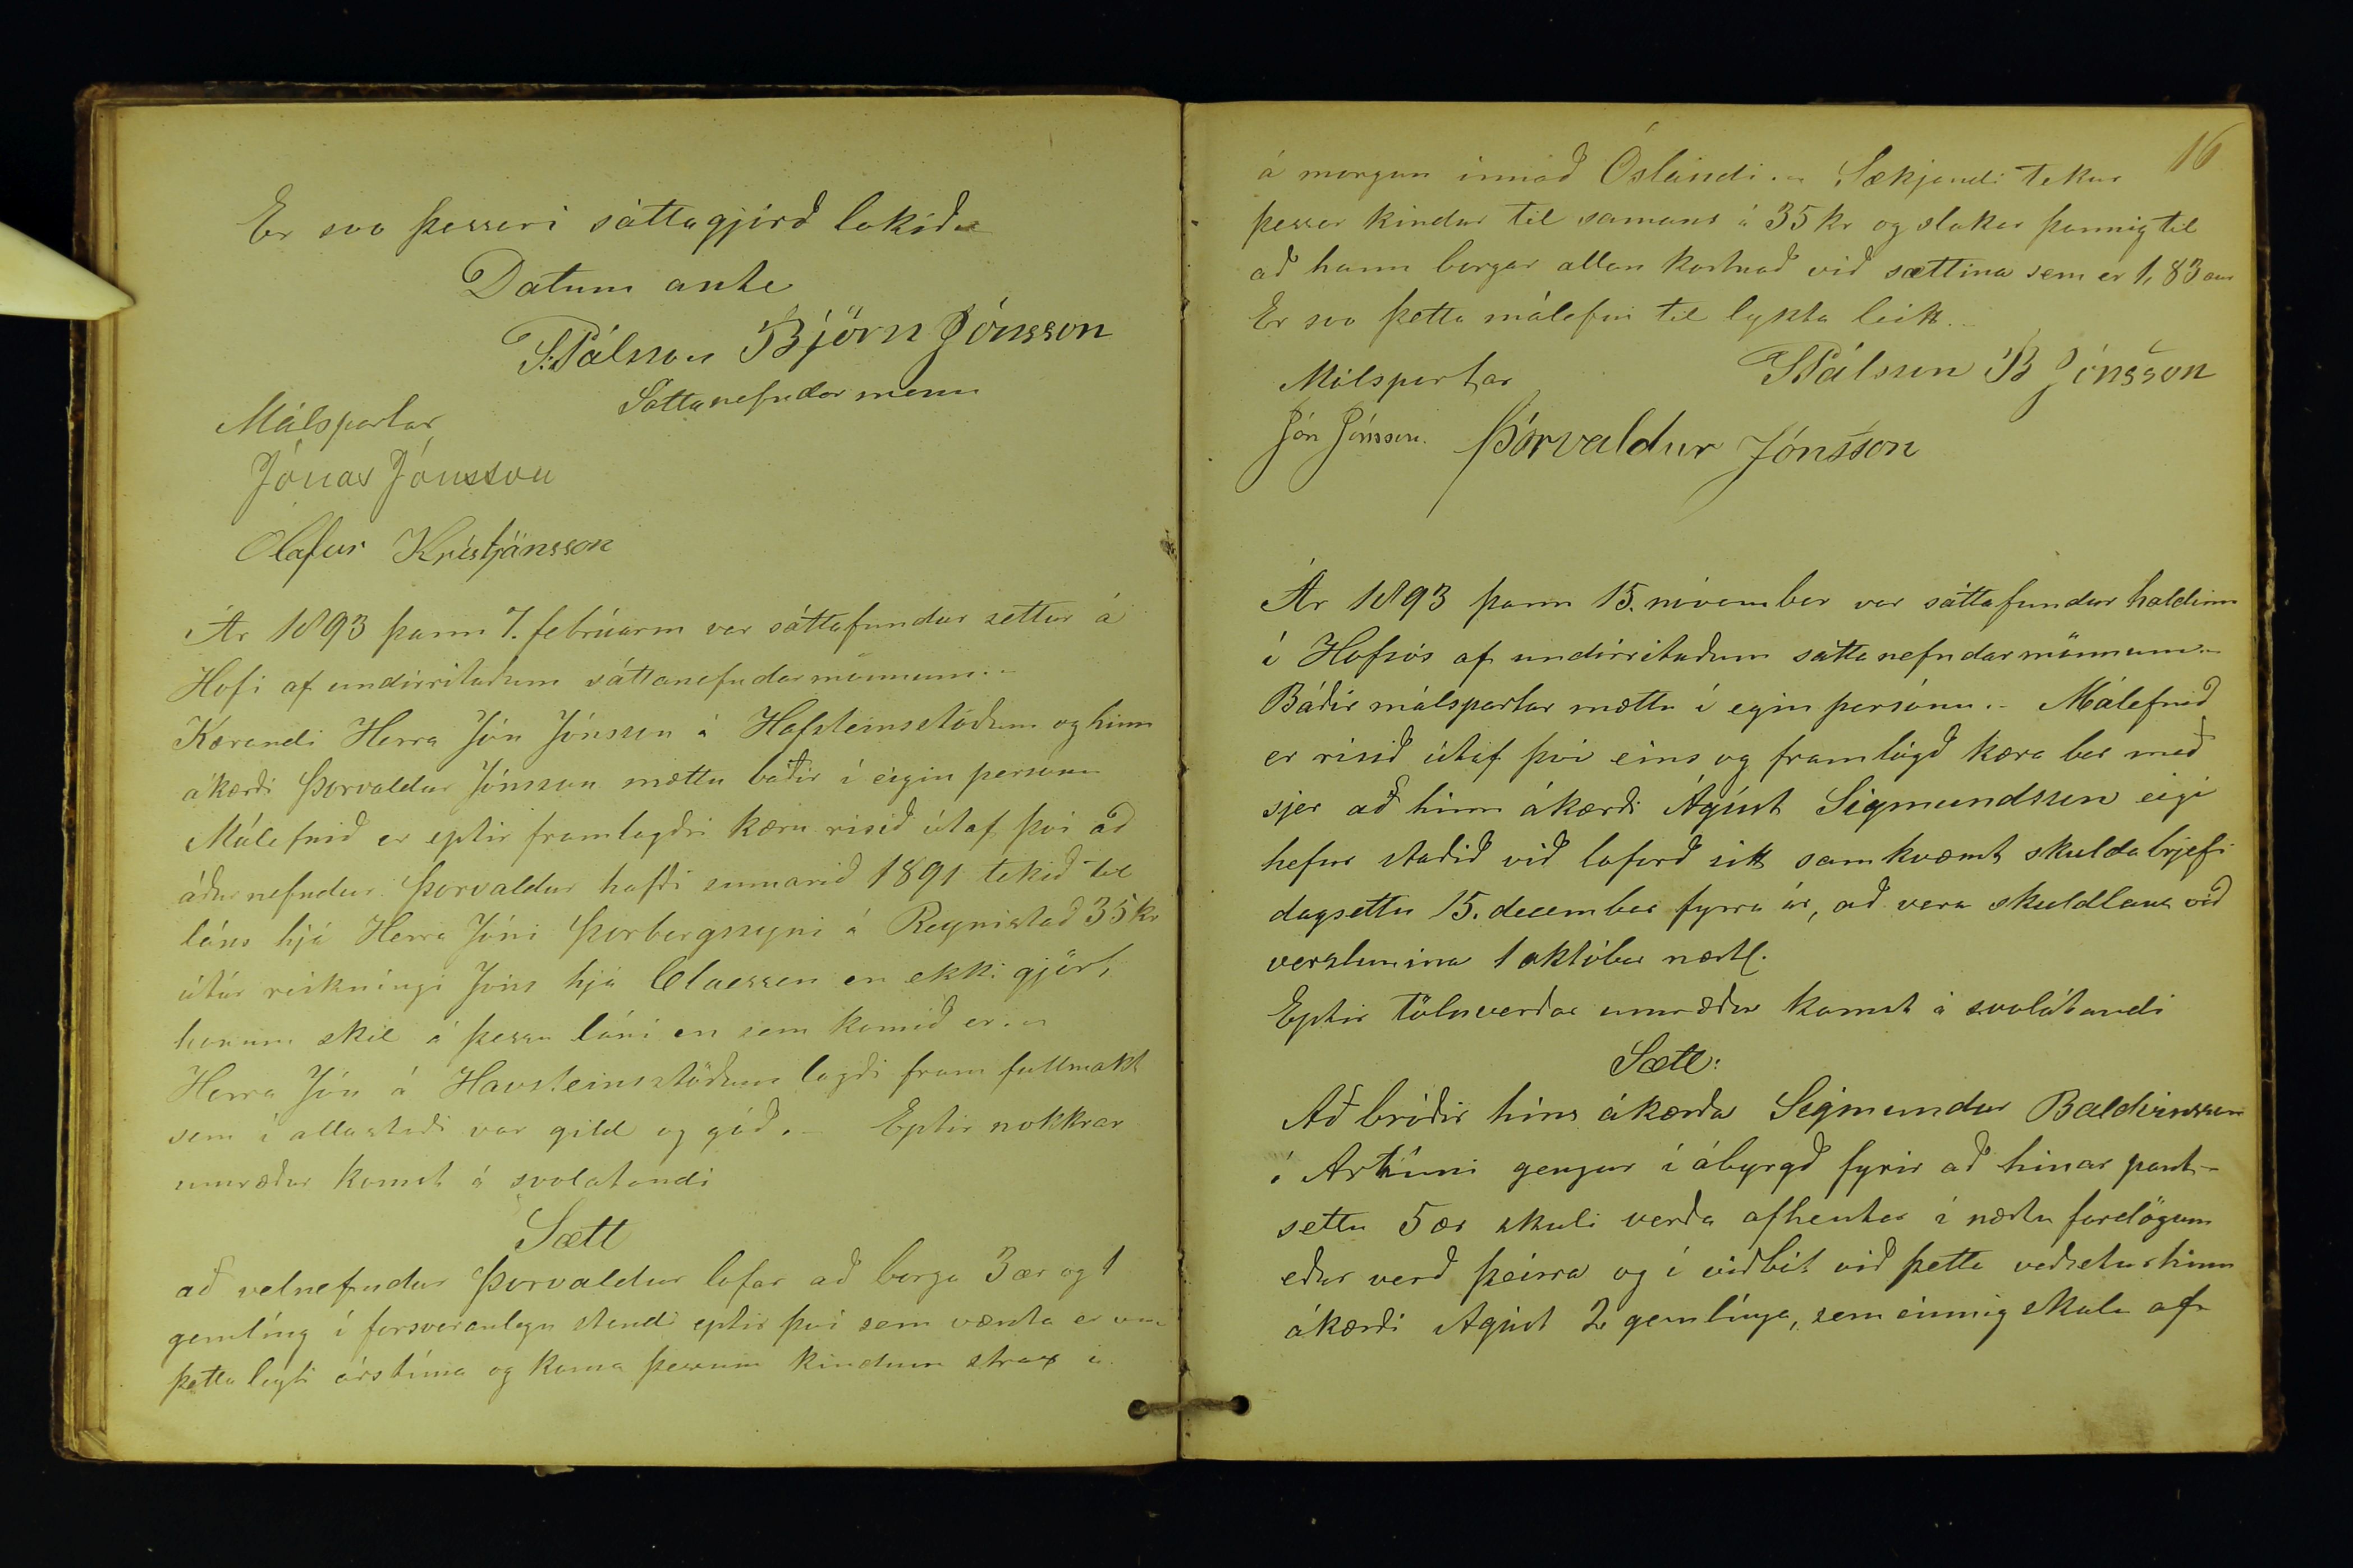 Er svo þesseri sáttagjörð lokið.
Datum ante
S: Pálsson Björn Jónsson
Sáttanefndarmenn
Málspartar
Jónas Jónsson
Ólafur Kristjánsson
Ár 1893 þann 7. febrúarm var sáttafundur settur á
Hofi af undirrituðum sáttanefndarmönnum. -
Kærandi Herra Jón Jónsson á Hafsteinsstöðum og hinn
ákærði Þorvaldur Jónsson mættu báðir í eigin personu
Málefnið er eptir framlagðri kæru risið útaf því að
áðurnefndur Þorvaldur hafði sumarið 1891 tekið til
láns hjá Herra Jóni Þorbergssyni á Reynistað 35 kr
útúr reikníngi Jóns hjá Claessen en ekki gjört
honum skil á þessu láni en sem komið er. -
Herra Jón á Havsteinsstöðum lagði fram fullmakt
sem í alla staði var gild og góð. - Eptir nokkrar
umræður komst á svolatandi
Sætt
að velnefndur Þorvaldur lofar að borga 3 ær og 1
gemling í forsvaranlegu standi eptir því sem vænta er um
þetta leyti árstíma og koma þessum kindum strax á
16
á morgun innað Óslandi. - Sækjandi tekur
þessar kindur til samans á 35 kr og slakar þannig til
að hann borgar allan kostnað við sættina sem er 1,83 aur
Er svo þetta málefni til lykta leitt. -
Málspartar S Pálsson B Jónsson
Jón Jónsson. Þórvaldur Jónsson
Ár 1893 þann 15. november var sáttafundur haldinn
í Hofsós af undirrituðum sáttanefndarmönnum. -
Báðir málspartar mættu í egin persónu. - Málefnið
er risið útaf því eins og framlögð kæra ber með
sjer að hinn ákærði Ágúst Sigmundsson eigi
hefur staðið við loforð sitt samkvæmt skuldabrjefi
dagsettu 15. december fyrra ár, að vera skuldlaus við
verslunina 1 október næstl.
Eptir töluverðar umræður komst á svolátandi
Sætt:
Að bróðir hins ákærða Sigmundur Baldvinsson
í Artúni gengur í ábyrgð fyrir að hinar pant-
settu 5 ær skuli verða afhentar í næstu fardögum
eður verð þeirra og í viðbót við þetta veðsetur hinn
ákærði Agúst 2 gemlínga, sem einnig skulu af-